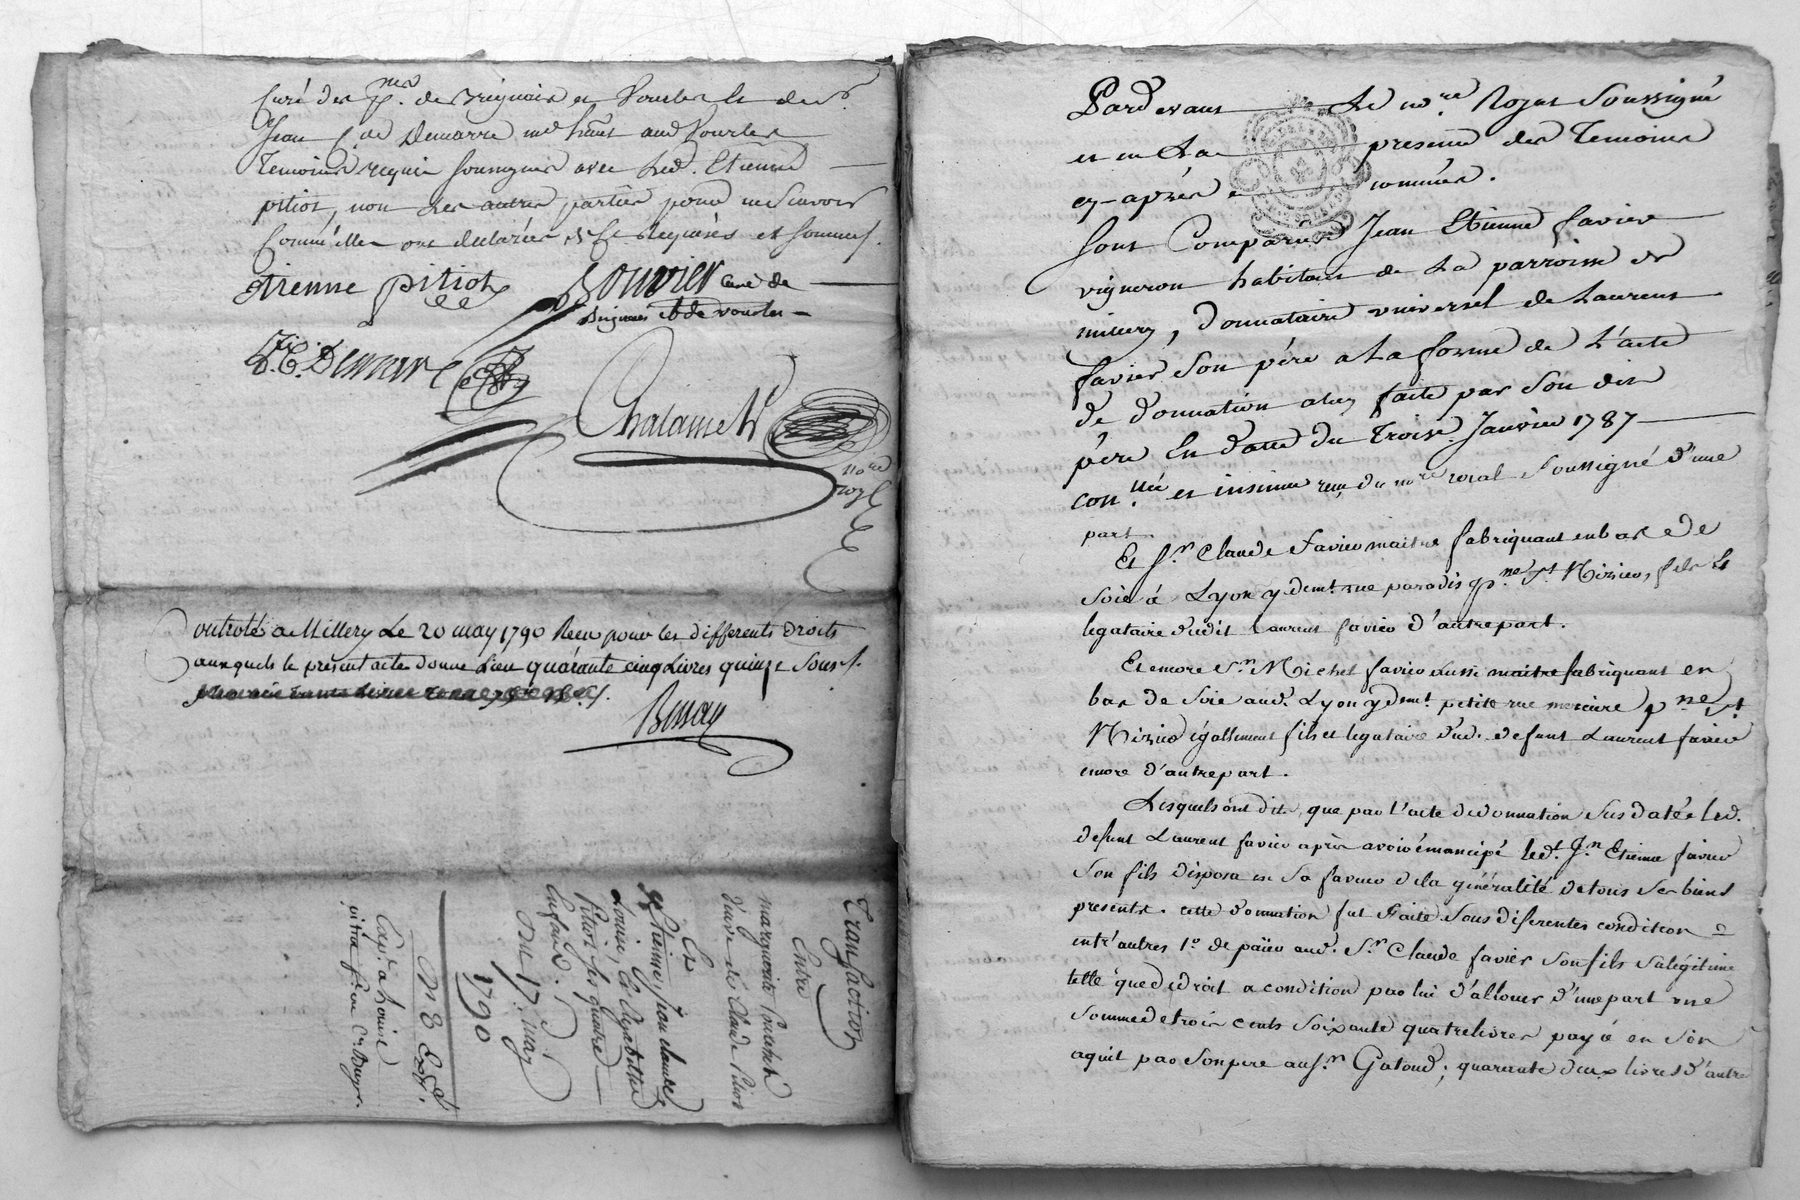 Curé des p.res de Brignais et Vourles et de s.r
Jean C.de Demarre m.d h.ant aud. Vourles
Temoins requis soussignés avec led. Etienne
pitiot, non les autres parties pour ne scavoir
Comm'elles ont declarées de ce requises et sommés.
Etienne pitiot
Bouvier curé de
Brignais et de Vourles
J. C. Demarre
Chalamel
no.re
royl
Controlé a Millery le 20 may 1790 Recu pour les differents droits
auxquels le present acte donne lieu quarante cinq livres quinze sous
Benay
Transaction
Entre
marguerite
veuve de Claude Pitiot
Et
Etienne, Jean claude
Louise, et Elisabeth
Pitiot ses quatre
enfans.
Du 17. may
1790
N.° 8
Exp.é a Louise
pitra
Pardevant le no.re Royal Soussigné
et en la presence des Temoins
cy-après nommés.
Sont Comparus Jean Etienne favier
vigneron habitant de la parroisse de
millery, donnataire universel de Laurent
favier son père a la forme de l'acte
de donnation a luy faite par son dit
père en datte du Trois Janvier 1787
con.llé et insinué reçu du no.re roial Soussigné d'une
part.
Et s.r Claude favier maitre fabriquant en bas de
soie à Lyon y dem.t rue paradis p.sse S.t Nizier, fils et
legataire dudit Laurent favier d'autre part.
Et encore S.r Michel favier aussi maitre fabriquant en
bas de soie aud. Lyon y dem.t petite rue merciere p.sse S.t
Nizier égallement fils et legataire dud. defunt Laurent favier
encore d'autre part.
Lesquels ont dit, que par l'acte de donnation susdaté led.
defunt Laurent favier après avoir émancipé led.t J.n Etienne favier
son fils disposa en sa faveur de la généralité de tous ses biens
presents. cette donnation fut faite sous diferentes condition
entr'autres 1.° de païer aud. S.r Claude favier son fils sa légitime
telle que de droit a condition par lui d'allouer d'une part une
somme de trois cents soixante quatre livres payé en son
aquit par son pere au s.r Gatoud; quarante deux livres d'autre